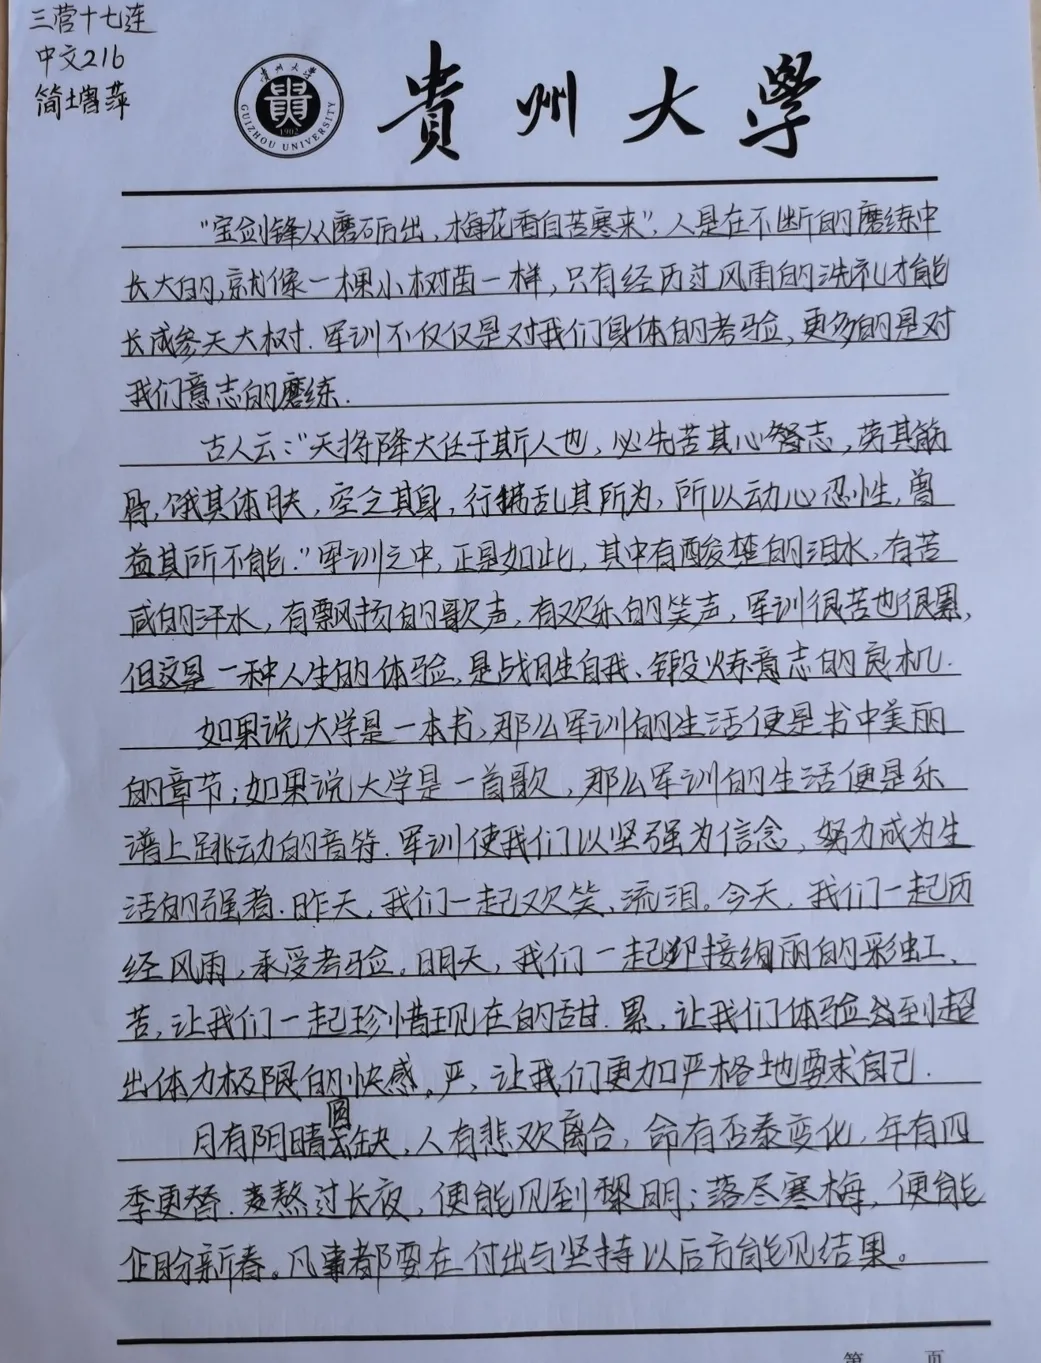 三营十七连
中文216
简增萍
貴州大學
貴州大學
GUIZHOU UNIVERSITY
1902
"宝剑锋从磨砺出,梅花香自苦寒来",人是在不断的磨练中
长大的,就像一棵小树苗一样,只有经历过风雨的洗礼才能
长成参天大树.军训不仅仅是对我们身体的考验,更多的是对
我们意志的磨练.
古人云:"天将降大任于斯人也,必先苦其心志,劳其筋
骨,饿其体肤,空乏其身,行拂乱其所为,所以动心忍性,曾
益其所不能."军训之中,正是如此,其中有酸楚的泪水,有苦
咸的汗水,有飘扬的歌声,有欢乐的笑声,军训很苦也很累,
但这是一种人生的体验,是战胜自我、锻炼意志的良机.
如果说大学是一本书,那么军训的生活便是书中美丽
的章节;如果说大学是一首歌,那么军训的生活便是乐
谱上跳动的音符.军训使我们以坚强为信念,努力成为生
活的强者.昨天,我们一起欢笑、流泪。今天,我们一起历
经风雨,承受考验。明天,我们一起迎接绚丽的彩虹、
苦,让我们一起珍惜现在的甜.累,让我们体验到超
出体力极限的快感。严,让我们更加严格地要求自己.
月有阴晴圆缺,人有悲欢离合,命有否泰变化,年有四
季更替.熬过长夜,便能见到黎明;落尽寒梅,便能
企盼新春。凡事都要在付出与坚持以后方能见结果。
第 页